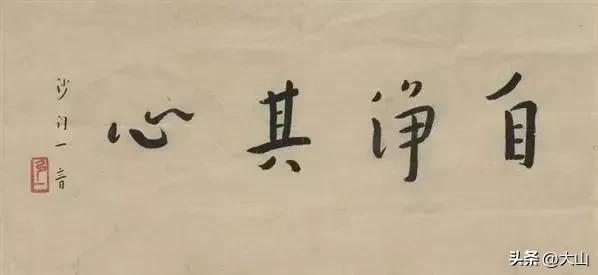 自净其心
沙门一音
头条 @大山